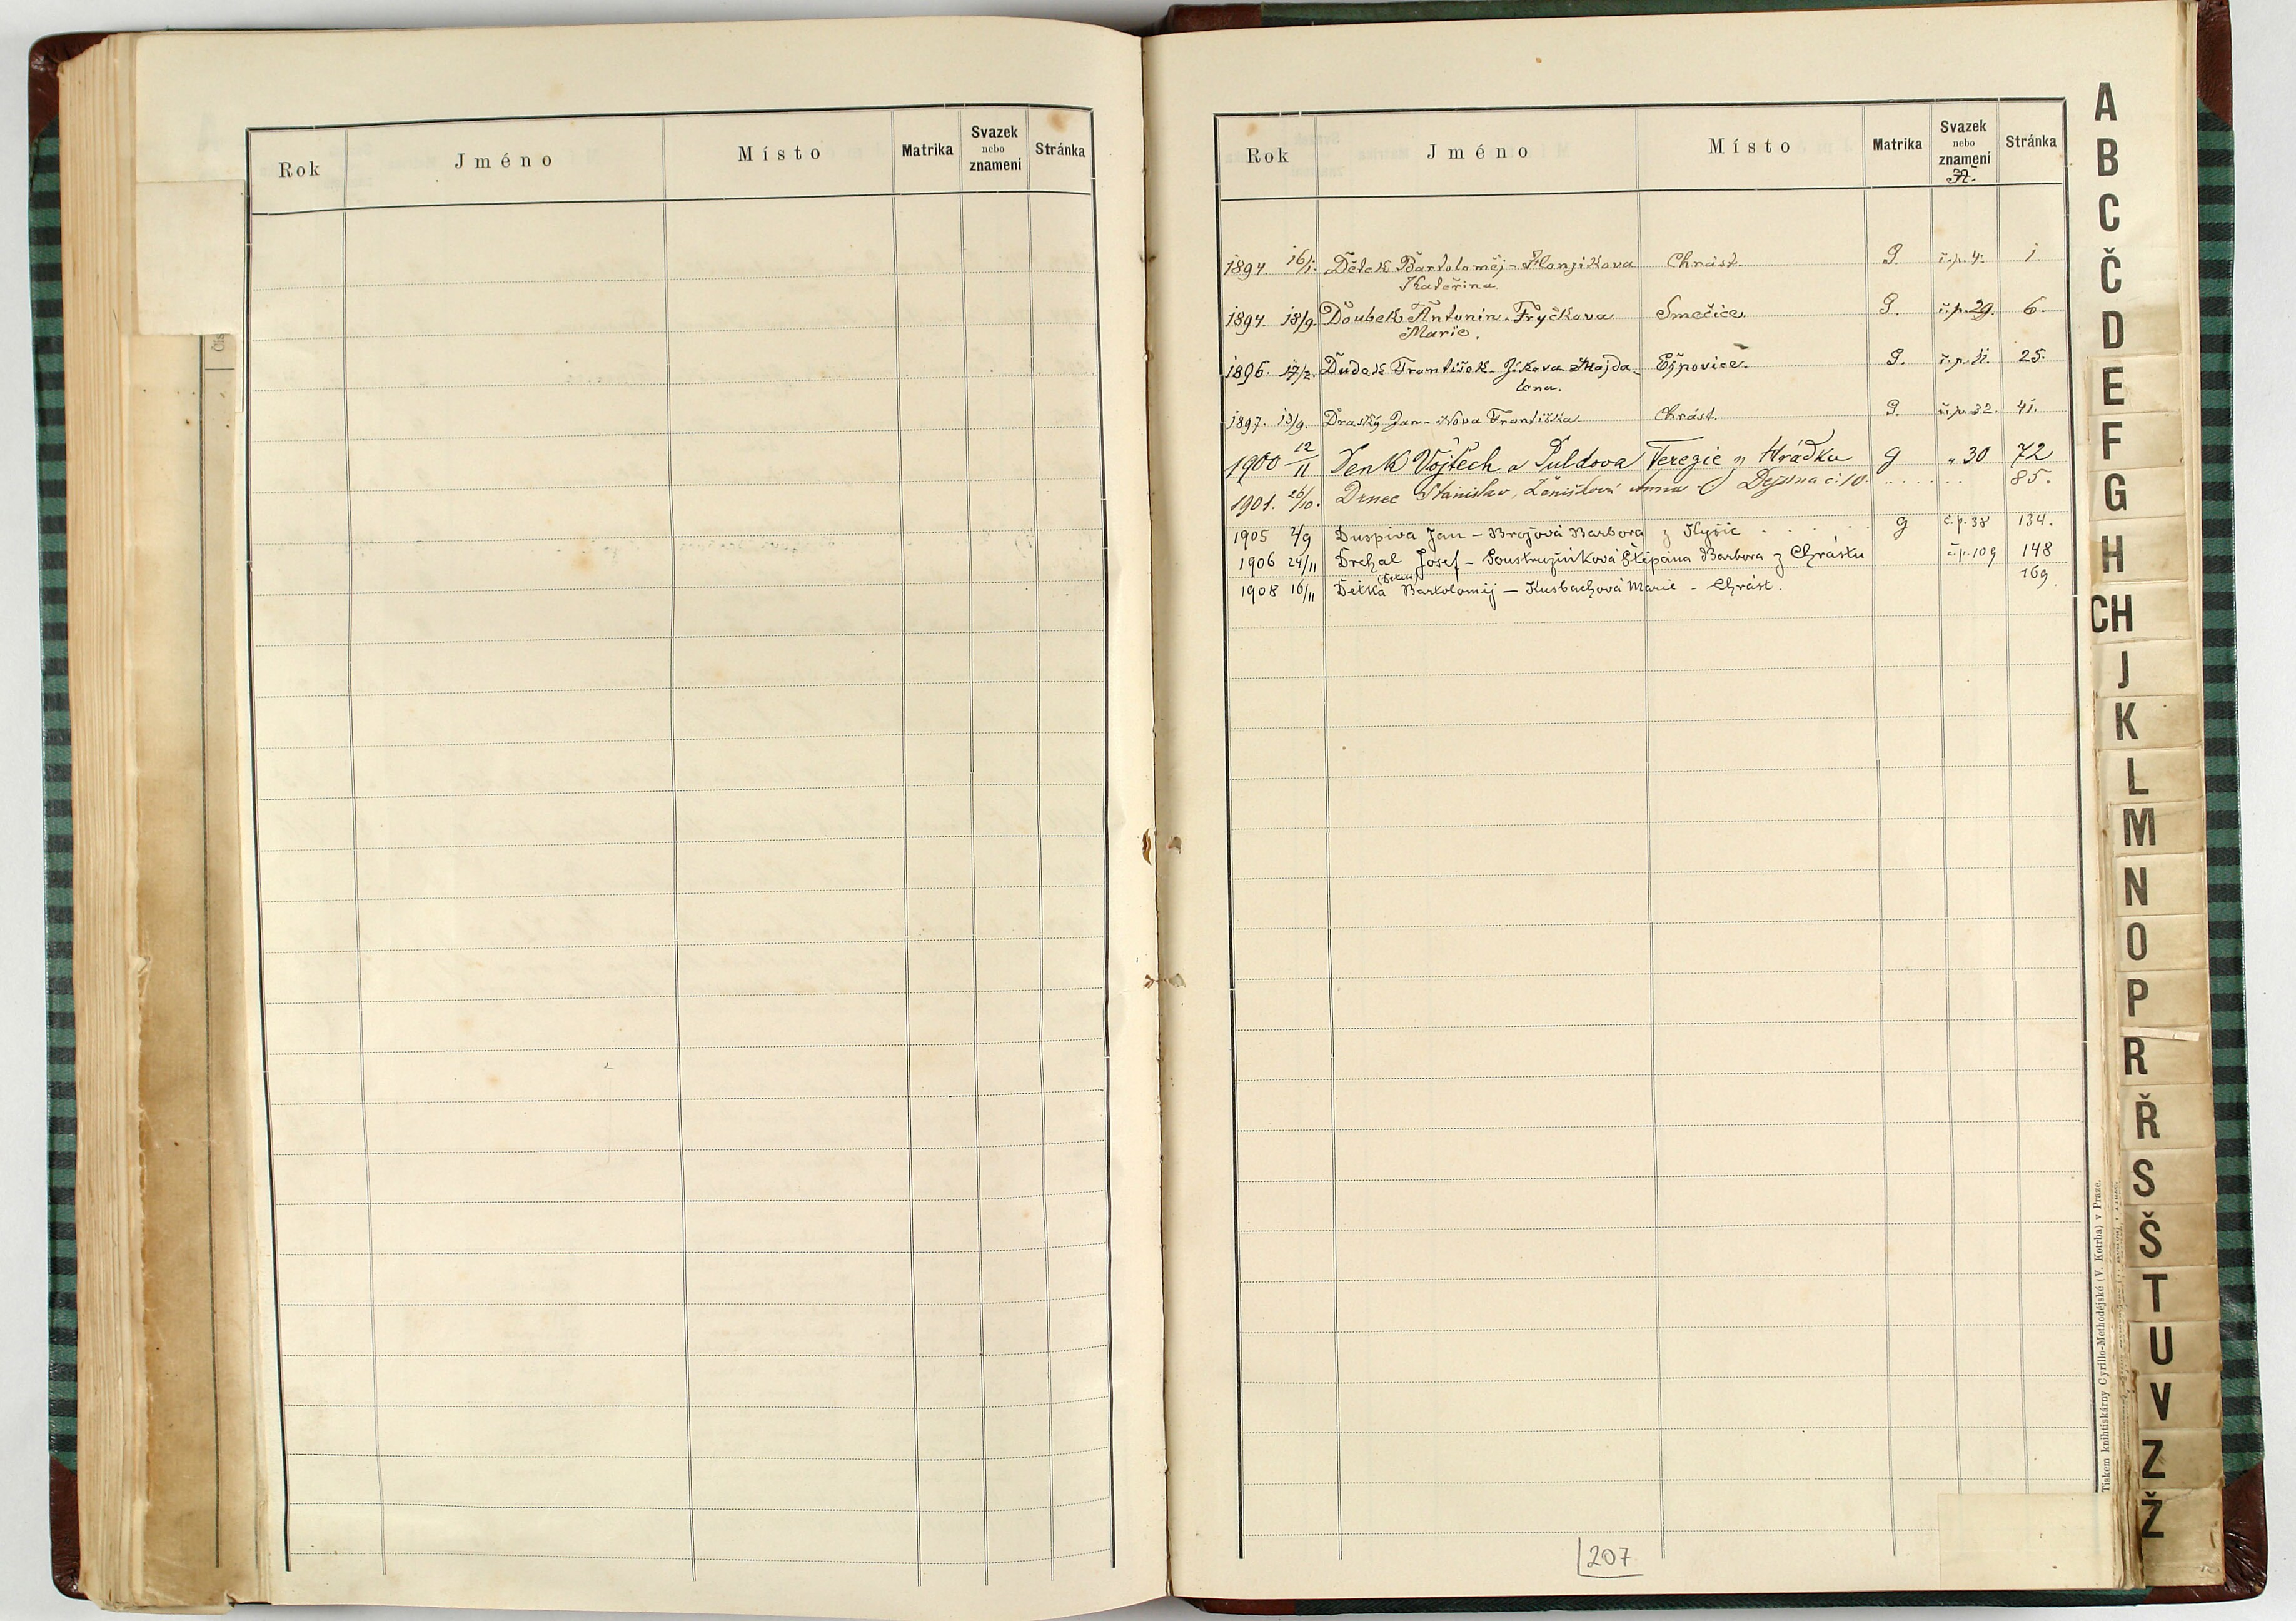 Rok Jméno Místo Matrika Svazek nebo znamení Stránka
Rok Jméno Místo Matrika Svazek nebo znamení Stránka
A.
1894. 16/1. Dětek Bartoloměj - Honzikova Chrást. G. č.p. 4. 1.
Kateřina.
1894. 18/9. Doubek Antonín - Fryčkova Smečice. G. č.p. 29. 6.
Marie.
1896. 17/2. Dudek František - Jíkova Majda- Ejpovice. G. č.p. 11. 25.
lena.
1897. 13/9. Draský Jan - Nova Františka Chrást. G. č.p. 32. 41.
1900 12/11 Denk Vojtěch a Puldova Terezie z Hrádku G „ 30 72
1901. 26/10. Drnec Stanislav, Anna - Dejšina č. 10. 85.
1905 2/9 Duspiva Jan - Brojová Barbora z G č.p. 38 134.
1906 24/11 Drchal Josef - Soustružníková Štěpána Barbora z Chrástu č.p. 109 148
1908 16/11 Detka Bartoloměj - Kusbachová Marie - Chrást. 169
207
A
B
C
Č
D
E
F
G
H
CH
J
K
L
M
N
O
P
R
Ř
S
Š
T
U
V
Z
Ž
Tiskem knihtiskárny Cyrillo-Methodějské (V. Kotrba) v Praze.